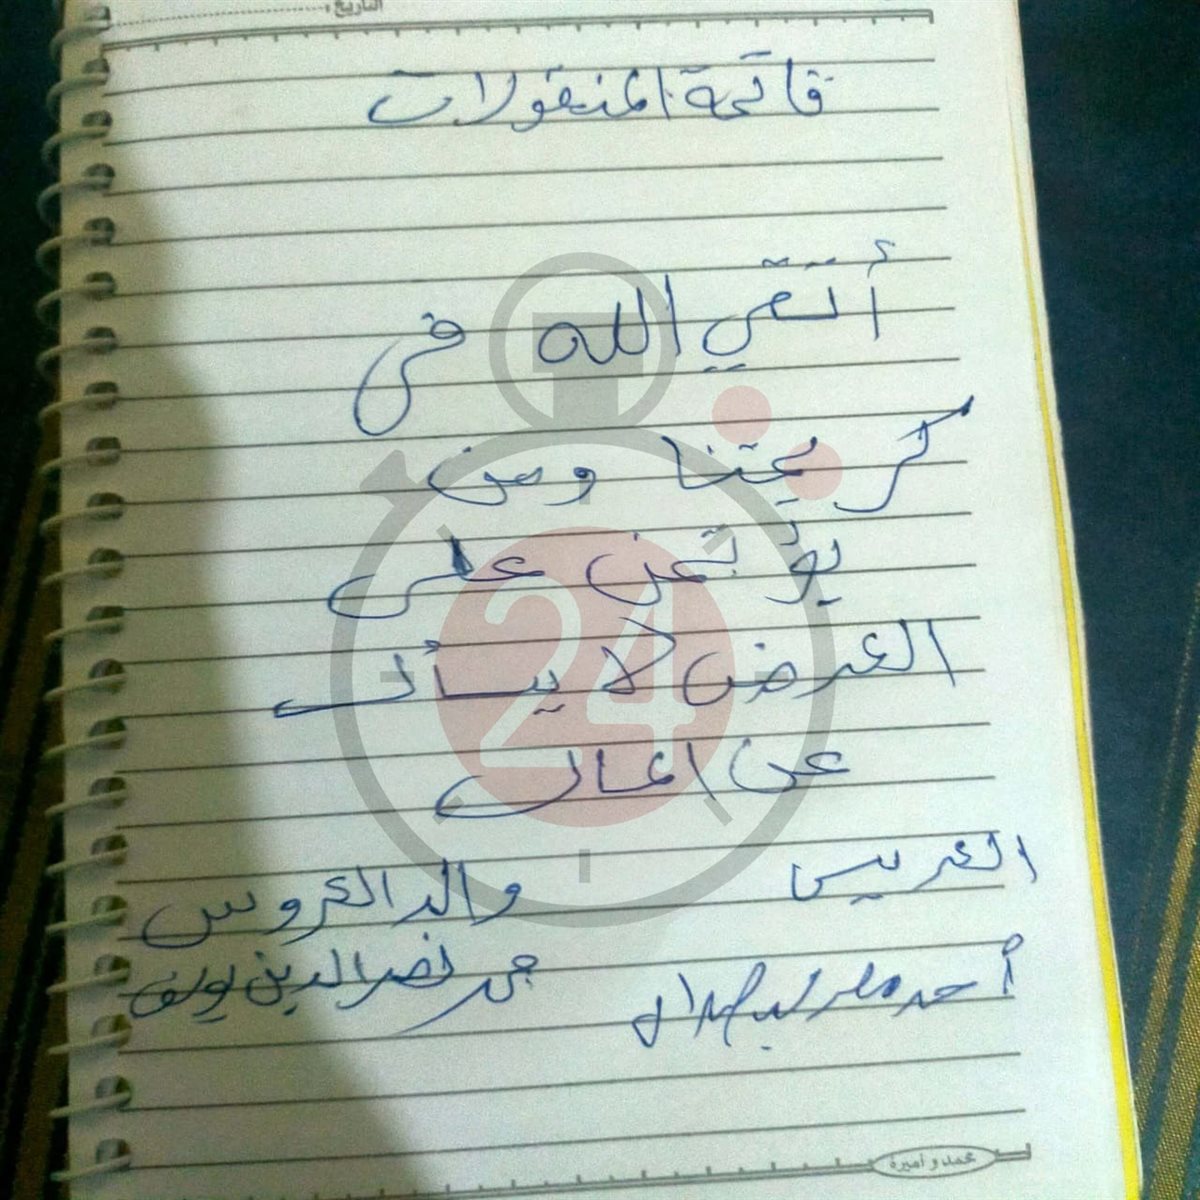 التاريخ:
قائمة المنقولات
أتقي الله في
كريمتنا ومن
يؤتمن على
العرض لا يسأل
عن المال
العريس
والد العروس
أحمد
محمد نصر الدين يوسف
24
محمد و أميرة